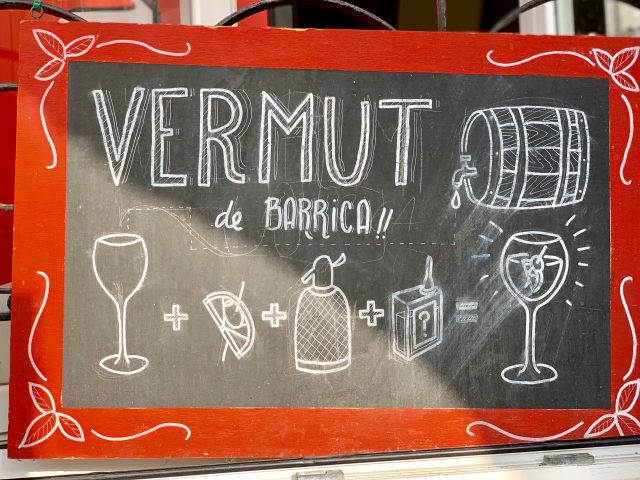 VERMUT
de BARRiCA!!
+ + + ? =